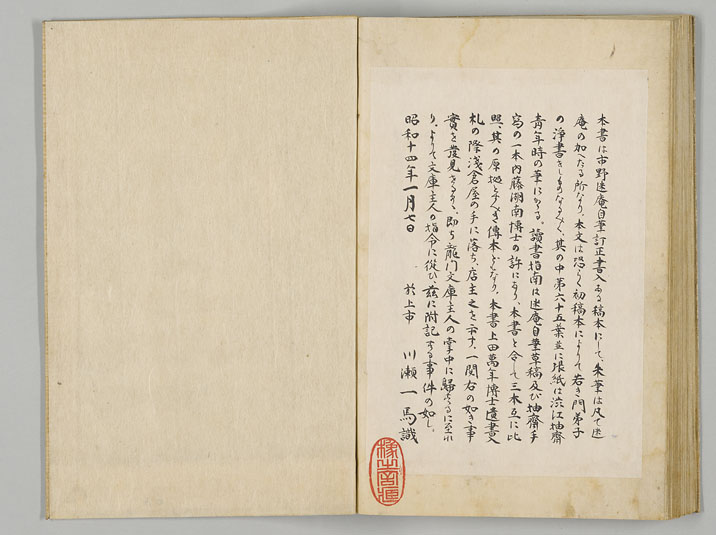 本書は市野迷庵自筆訂正書入ある稿本にして、朱筆は凡て迷
庵の加へたる所なり、本文は恐らく初稿本によりて若き門弟子
の浄書せしものなるべく、其の中第六十五葉並に張紙は渋江抽斎
青年時の筆にかゝる。読書指南は迷庵自筆草稿及び抽斎手
写の一本内藤湖南博士の許にあり、本書と合して三本互に比
照、其の原地とすべき傳本となり、本書上田萬年博士遺書入
札の際浅倉屋の手に落ち、店主之を示す、一閲右の如き事
實を發見せるが、即ち龍门文庫主人の掌中に歸するに至れ
り、よりて文庫主人の指令に従ひ、茲に附記する事件の如し。
昭和十四年一月七日 於上市 川瀬一馬識